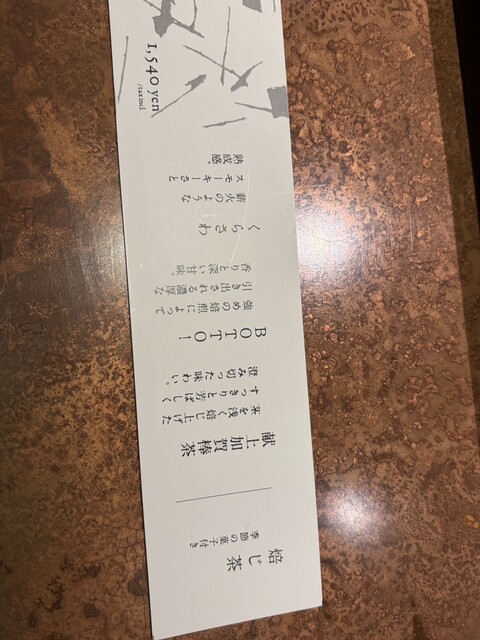 焙じ茶
季節の菓子付き
献上加賀棒茶
茎を浅く焙じ上げた
すっきりと芳ばしく
澄み切った味わい。
BOTTO!
強めの焙煎によって
引き出される濃厚な
香りと深い甘味。
くらさわ
薪火のような
スモーキーさと
熟成感。
1,540 yen
/tax incl.